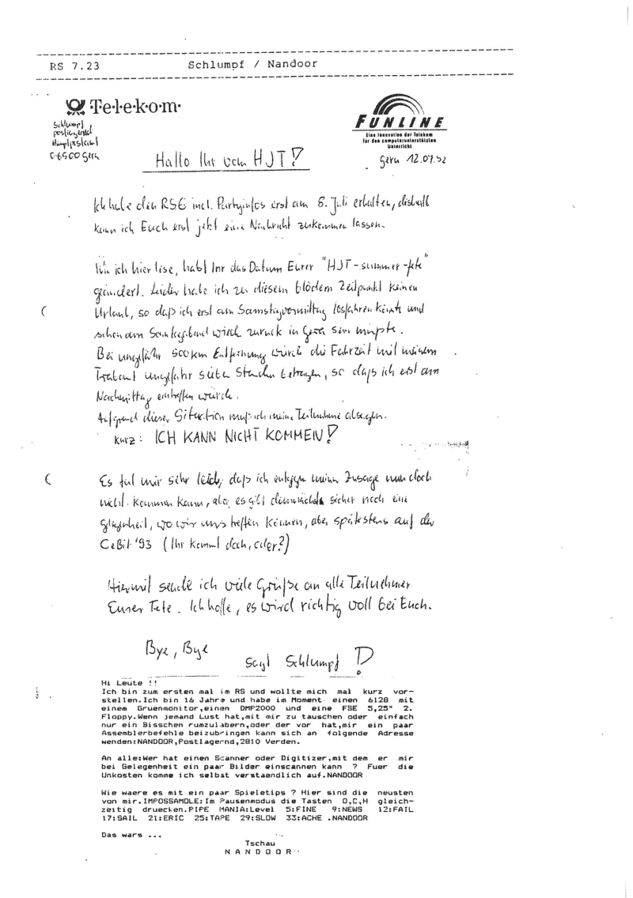 RS 7.23 Schlumpf / Nandoor
Telekom
FUNLINE
Eine Innovation der Telekom
für den computerunterstützten
Unterricht
Schlumpf
postlagernd
Hauptpostamt
O-6500 Gera
Gera 12.07.92
Hallo Ihr vom HJT!
Ich habe den RSE incl. Partyinfos erst am 8. Juli erhalten, deshalb
kann ich Euch erst jetzt eine Nachricht zukommen lassen.
Wie ich hier lese, habt Ihr das Datum Eurer "HJT-summer-fete"
geändert. Leider habe ich zu diesem blödem Zeitpunkt keinen
Urlaub, so daß ich erst am Samstagvormittag losfahren könnte und
schon am Sonntagabend wieder zurück in Gera sein müßte.
Bei ungefähr 500km Entfernung würde die Fahrzeit mit meinem
Trabant ungefähr sieben Stunden betragen, so daß ich erst am
Nachmittag eintreffen würde.
Aufgrund dieser Situation muß ich meine Teilnahme absagen.
kurz: ICH KANN NICHT KOMMEN!
Es tut mir sehr leid, daß ich entgegen meiner Zusage nun doch
nicht kommen kann, aber es gibt demnächst sicher noch eine
Gelegenheit, wo wir uns treffen können, aber spätestens auf der
CeBit '93 (Ihr kommt doch, oder?)
Hiermit sende ich viele Grüße an alle Teilnehmer
Eurer Fete. Ich hoffe, es wird richtig voll bei Euch.
Bye, Bye
sagt Schlumpf!
Hi Leute !!
Ich bin zum ersten mal im RS und wollte mich mal kurz vor-
stellen.Ich bin 16 Jahre und habe im Moment einen 6128 mit
einem Gruenmonitor,einen DMP2000 und eine FSE 5,25" 2.
Floppy.Wenn jemand Lust hat,mit mir zu tauschen oder einfach
nur ein Bisschen rumzulabern,oder der vor hat,mir ein paar
Assemblerbefehle beizubringen kann sich an folgende Adresse
wenden:NANDOOR,Postlagernd,2810 Verden.
An alle:Wer hat einen Scanner oder Digitizer,mit dem er mir
bei Gelegenheit ein paar Bilder einscannen kann ? Fuer die
Unkosten komme ich selbst verstaendlich auf.NANDOOR
Wie waere es mit ein paar Spieletips ? Hier sind die neusten
von mir.IMPOSSAMOLE:Im Pausenmodus die Tasten O,C,H gleich-
zeitig druecken.PIPE MANIA:Level 5:FINE 9:NEWS 12:FAIL
17:SAIL 21:ERIC 25:TAPE 29:SLOW 33:ACHE .NANDOOR
Das wars ...
Tschau
N A N D O O R